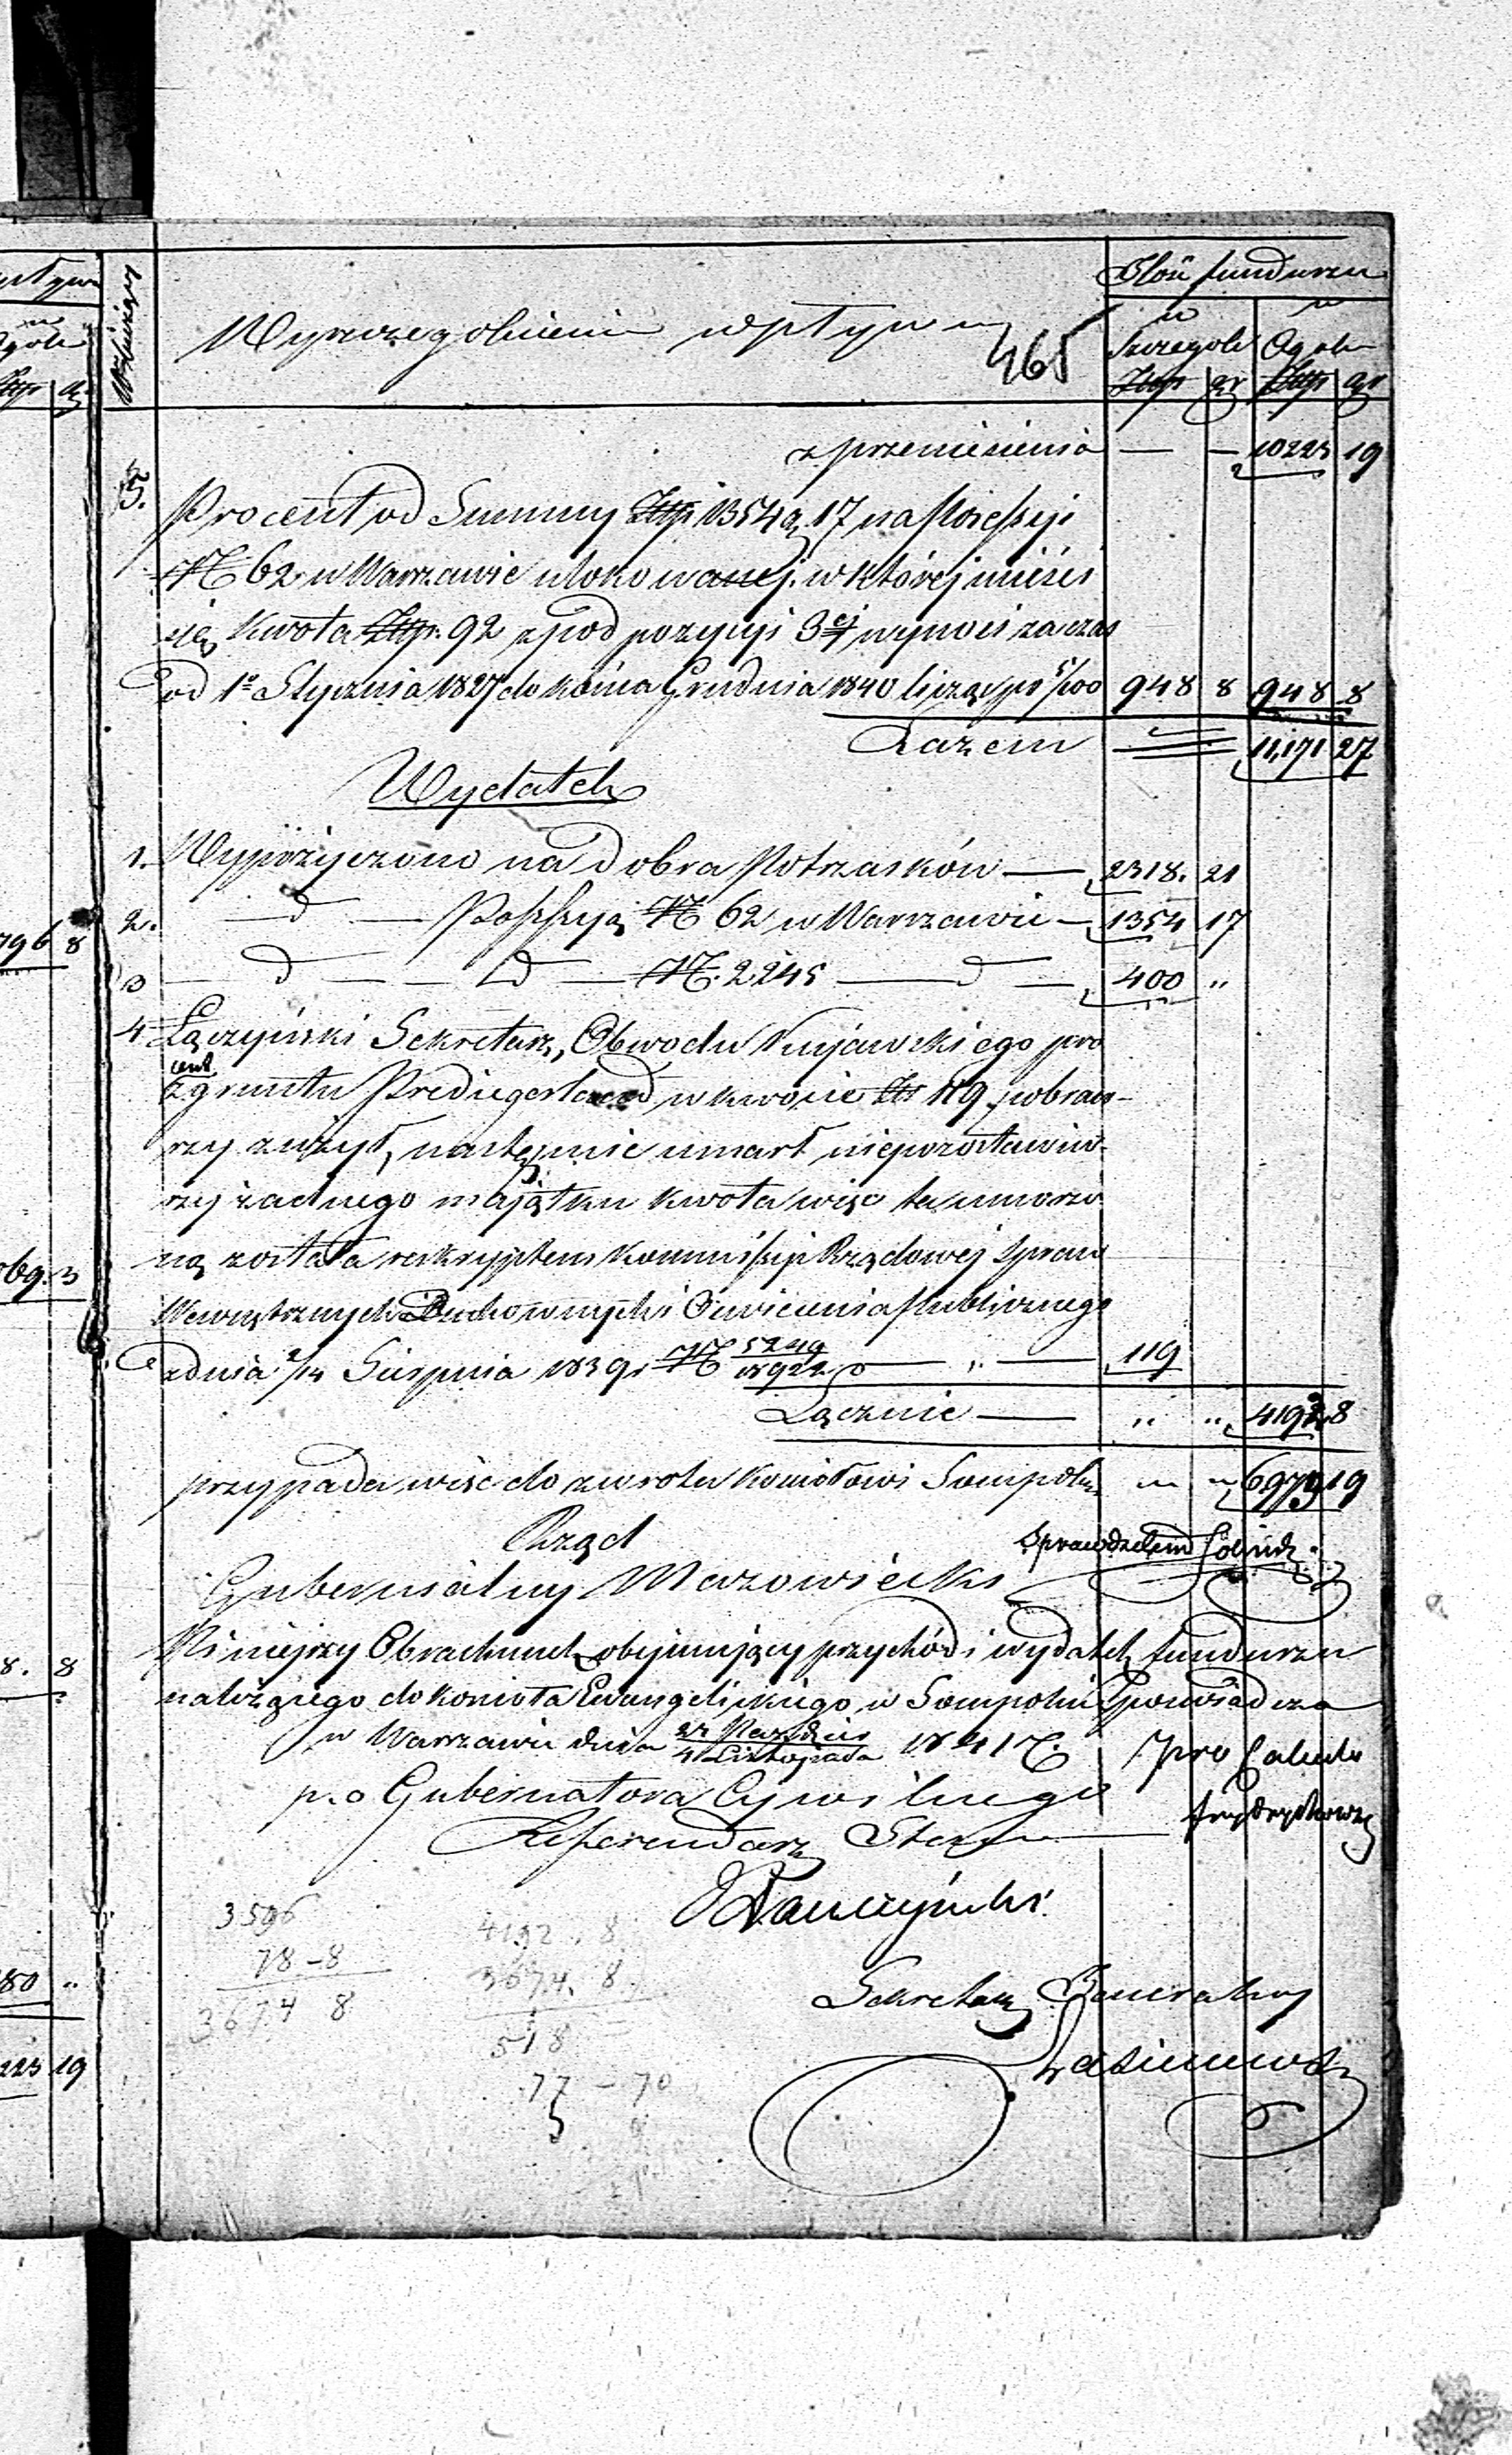 Wyszczególnienie wpływu
465
Stan funduszu
w Szczególe
w Ogóle
Złp gr Złp gr
z przeniesienia — — 10223 19
5. Procent od Summy Złp 1354 g 17 na Possessyi
№ 62 w Warszawie ulokowanej w której mieści
się kwota Złp. 92 z pod pozycyi 3ej wynosi za czas
od 1o Stycznia 1827 do końca Grudnia 1840 licząc po 5/100 948 8 948 8
Razem 11,171 27
Wydatek
1. Wypożyczono na dobra Potrzasków — 2318. 21
2. — d — Possessyą № 62 w Warszawie — 1354 17
3 — d — d — № 2245 — d — 400 "
4. Łączyński Sekretarz Obwodu Kujawskiego pro
cent
z gruntu w kwocie Zł 119 pobraw-
szy zużył, następnie umarł niepozostawiw-
szy żadnego majątku kwota więc ta umorzo
ną została reskryptem Kommissyi Rządowej Spraw
Wewnętrznych Duchownych i Oświecenia Publicznego
z dnia 2/14 Sierpnia 1839 r № 5249/18922 — " — 119
Łącznie — " " 4192 8
przypada więc do zwrotu kościołowi Sompolno " " 6979 19
Rząd
Sprawdziłem
Gubernialny Mazowiecki
Niniejszy Obrachunek obejmujący przychód i wydatek funduszu
należącego do kościoła Ewangelickiego w Sompolnie poswiadcza
w Warszawie dnia 23 Paździer/4 Listopada 1841 r.
pro Calculo
p.o Gubernatora Cywilnego
Referendarz Stanu
Sekretarz Generalny
3596
78 - 8
3674 8
4192. 8
3674. 8
518
77 - 70
796 8
069. 3
8. 8
80 "
223 19